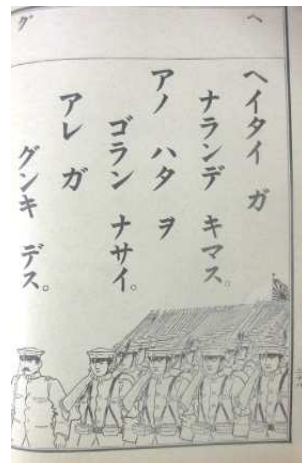 ヘ
グ
ヘイタイ ガ
ナランデ キマス。
アノ ハタ ヲ
ゴラン ナサイ。
アレ ガ
グンキ デス。